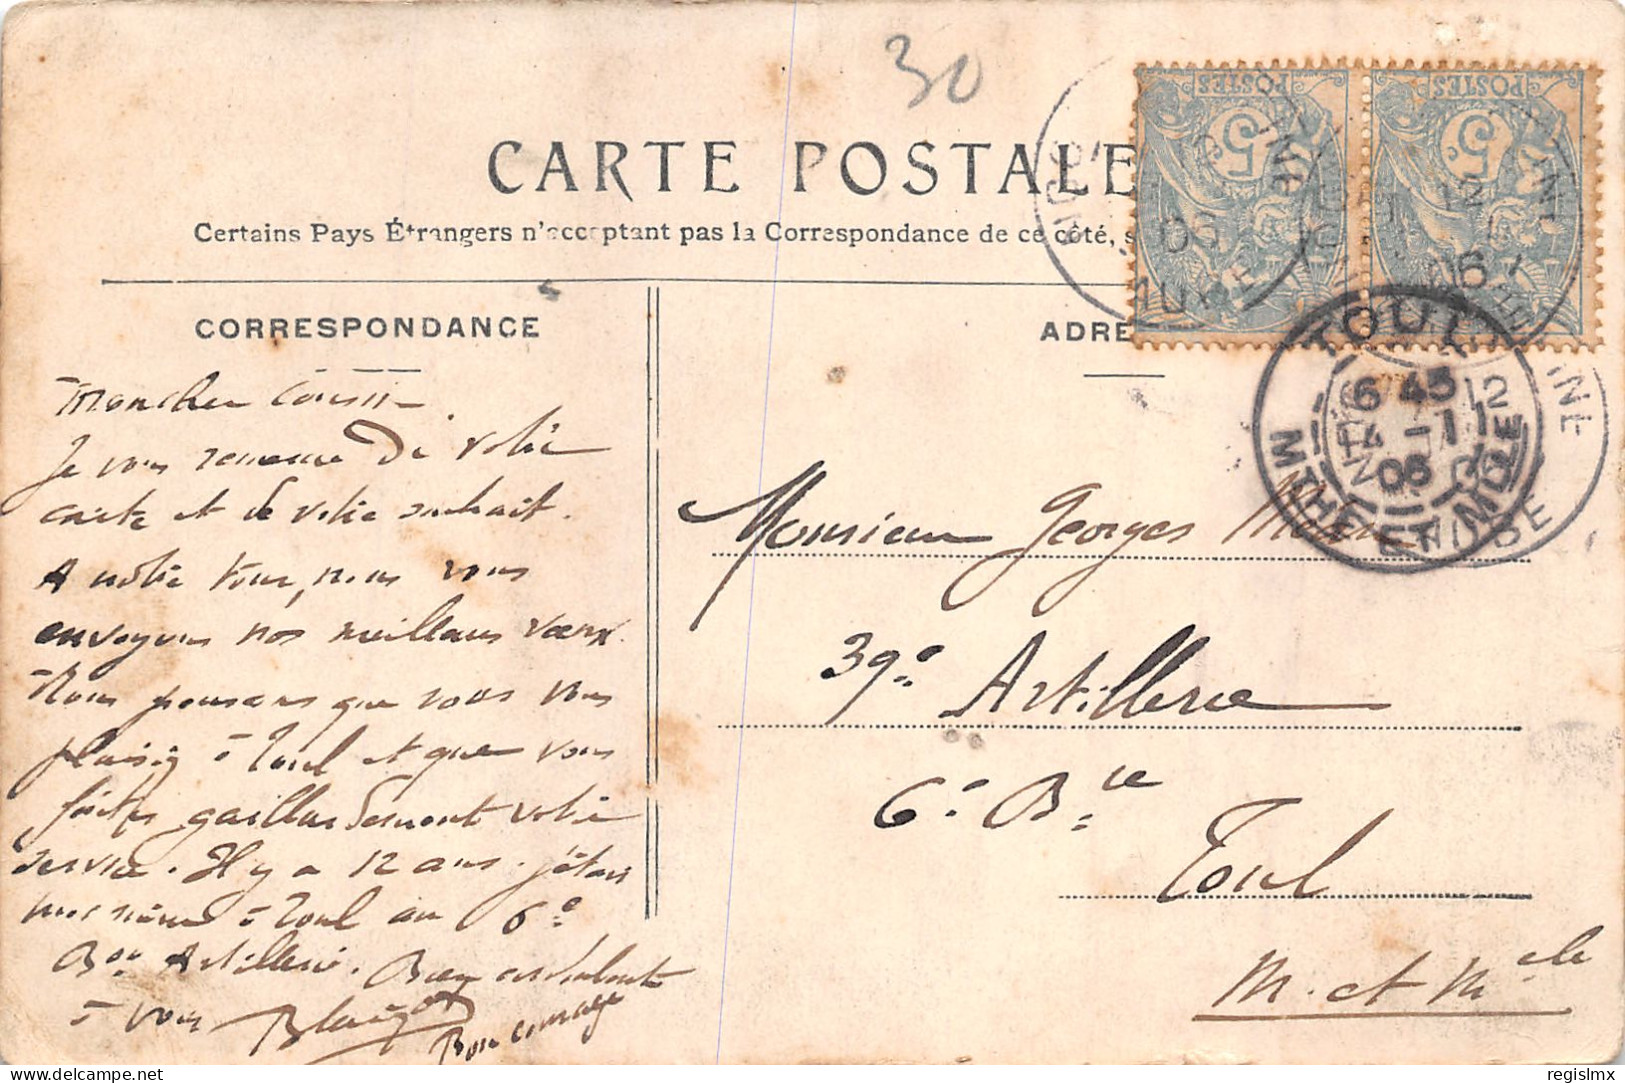 30
CARTE POSTALE
Certains Pays Étrangers n'acceptant pas la Correspondance de ce côté, s
CORRESPONDANCE
ADRE
POSTES
5
POSTES
5
TOUL
6 45
4 -11
06
MTHE ET MOLLE
12
06
AUBE
Mon cher Cousin.
Je vous remercie de votre
carte et de votre souhait.
A notre tour, nous vous
envoyons nos meilleurs vœux.
Nous pensons que vous vous
plaisez à Toul et que vous
faites gaillardement votre
service. Il y a 12 ans j'étais
moi même à Toul au 6e
Bon Artillerie. Bien cordialement
à vous
Bon courage
Monsieur Georges
39e Artillerie
6e Bie
Toul
M. et Melle
regislmx
delcampe.net